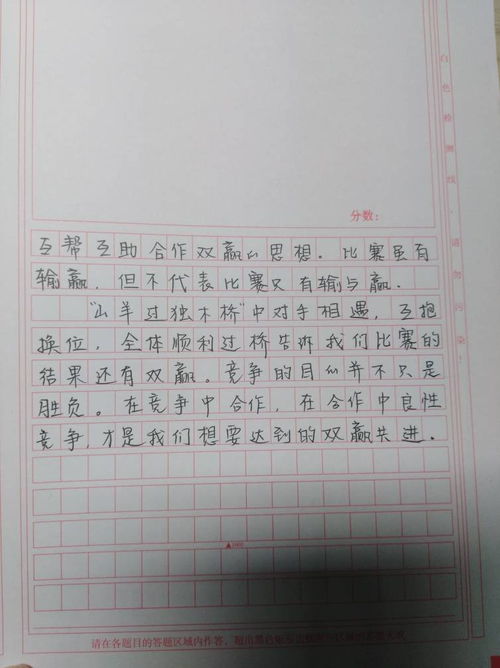 分数：
白色检测线，请勿污染
互帮互助合作双赢的思想．比赛虽有
输赢，但不代表比赛只有输与赢．
"山羊过独木桥"中对手相遇，互抱
换位，全体顺利过桥告诉我们比赛的
结果还有双赢。竞争的目的并不只是
胜负。在竞争中合作，在合作中良性
竞争，才是我们想要达到的双赢共进．
请在各题目的答题区域内作答，超出黑色矩形边框限定区域的答案无效